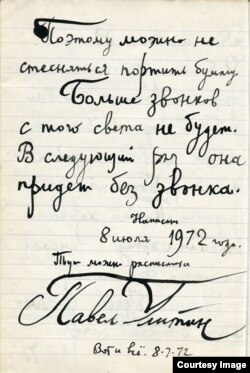 Поэтому можно не
стесняться портить бумагу.
Больше звонков
с того света не будет.
В следующий раз она
придет без звонка.
Написано
8 июля 1972 года.
Тут можно расписаться
Павел Улитин
Вот и всё. 8.7.72
Courtesy Image